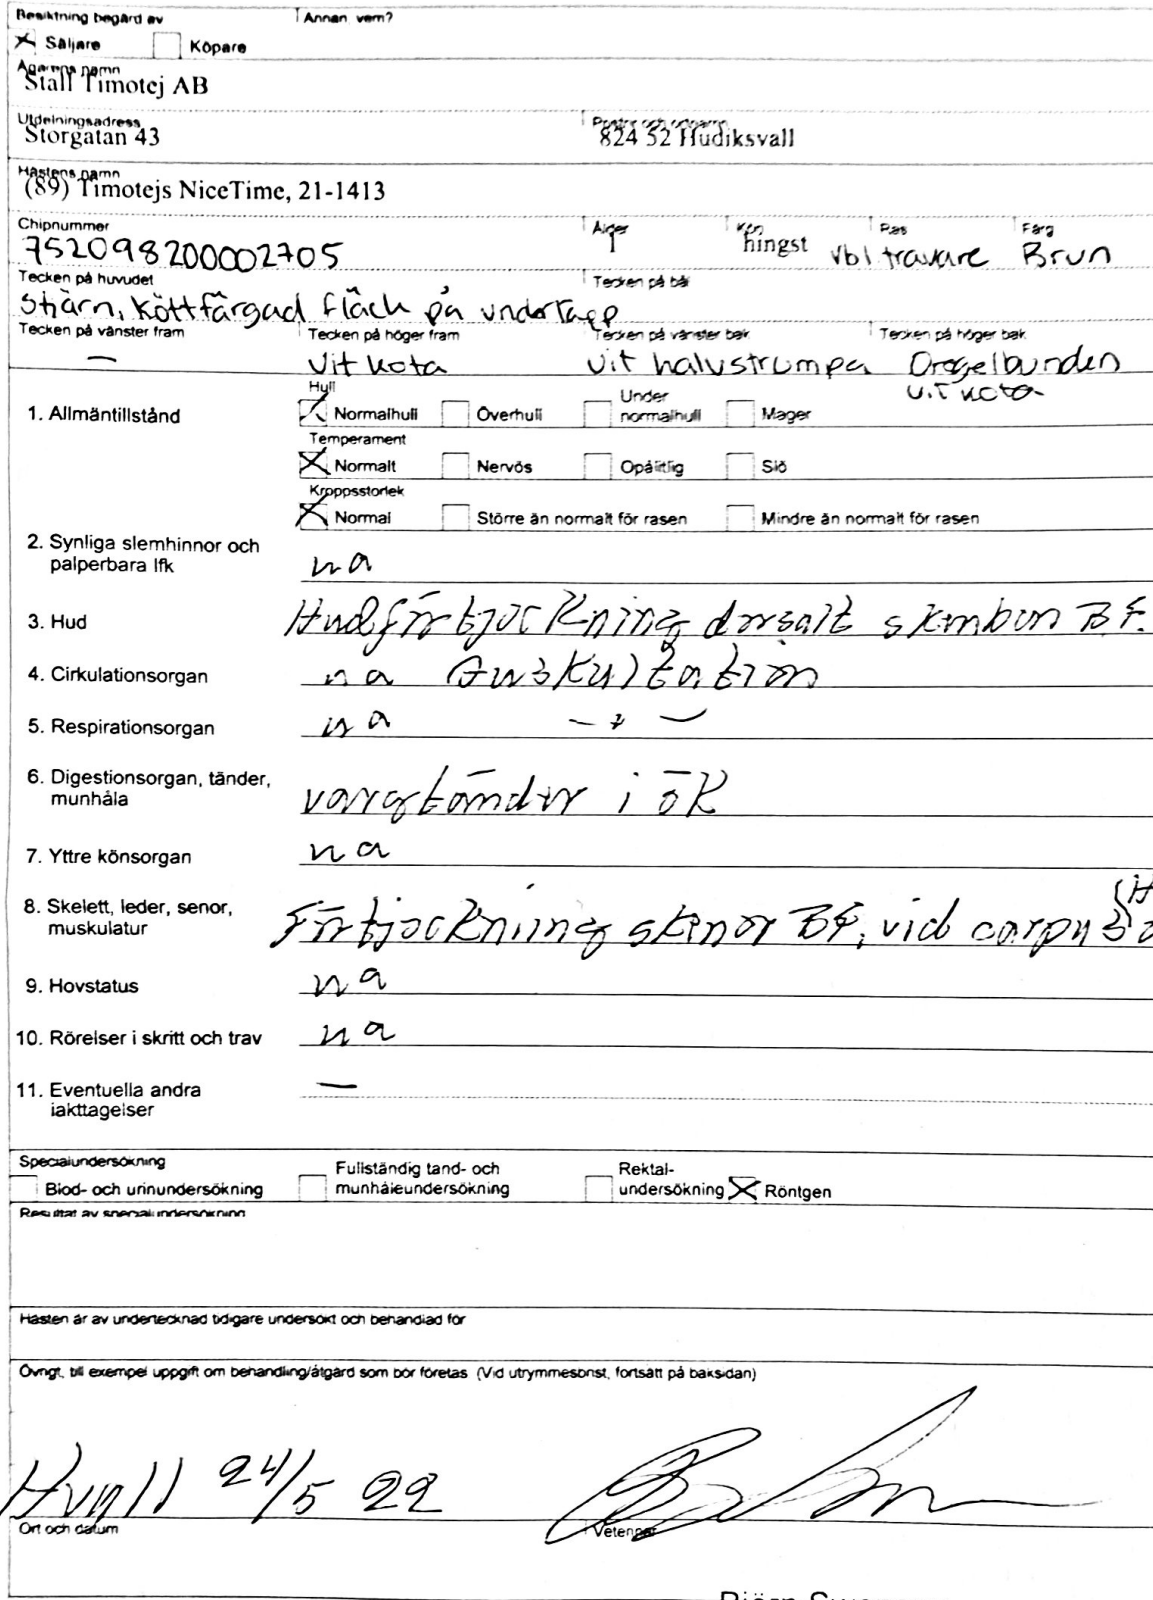 Besiktning begärd av Annan vem?
Säljare Köpare
Ägarens namn
Stall Timotej AB
Utdelningsadress Postnr och ortnamn
Storgatan 43 824 52 Hudiksvall
Hästens namn
(89) Timotejs NiceTime, 21-1413
Chipnummer Ålder Kön Ras Färg
752098200002705 1 hingst vbl travare Brun
Tecken på huvudet Tecken på bål
Stjärn, köttfärgad fläck på underläpp
Tecken på vänster fram Tecken på höger fram Tecken på vänster bak Tecken på höger bak
— Vit kota Vit halvstrumpa Oregelbunden
vit kota
Hull
1. Allmäntillstånd Normalhull Överhull Under normalhull Mager
Temperament
Normalt Nervös Opålitlig Slö
Kroppsstorlek
Normal Större än normalt för rasen Mindre än normalt för rasen
2. Synliga slemhinnor och
palperbara lfk na
3. Hud Hudförtjockning dorsalt skenben BF.
4. Cirkulationsorgan na Auskultation
5. Respirationsorgan na — " —
6. Digestionsorgan, tänder,
munhåla vargtänder i ök
7. Yttre könsorgan na
8. Skelett, leder, senor,
muskulatur Förtjockning skenor BF, vid carpus
9. Hovstatus na
10. Rörelser i skritt och trav na
11. Eventuella andra —
iakttagelser
Specialundersökning
Blod- och urinundersökning Fullständig tand- och munhåleundersökning Rektal- undersökning Röntgen
Resultat av specialundersökning
Hästen är av undertecknad tidigare undersökt och behandlad för
Övrigt, till exempel uppgift om behandling/åtgärd som bör företas (Vid utrymmesbrist, fortsätt på baksidan)
24/5 22
Ort och datum Veterinär